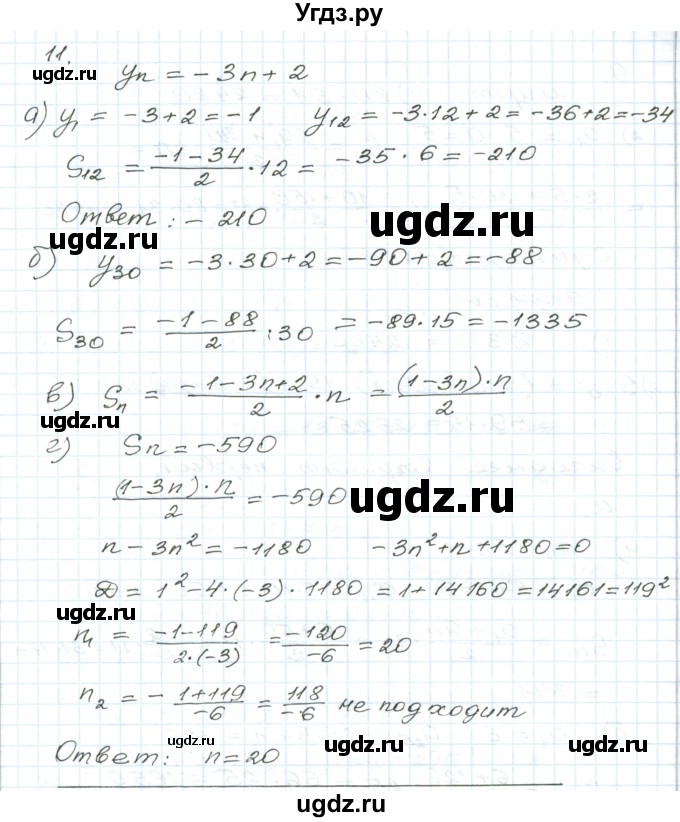 Угдз.ру
11.
yn = -3n + 2
ugdz.ru
а) y1 = -3+2 = -1 y12 = -3·12 + 2 = -36+2 = -34
S12 = (-1-34)/2 · 12 = -35 · 6 = -210
Ответ: - 210
ugdz.ru
ugdz.ru
б) y30 = -3·30+2 = -90+2 = -88
S30 = (-1-88)/2 · 30 = -89·15 = -1335
в) Sn = (-1-3n+2)/2 · n = ((1-3n)·n)/2
г) Sn = -590
((1-3n)·n)/2 = -590
ugdz.ru
n - 3n² = -1180 -3n²+n+1180=0
D = 1²-4·(-3)·1180 = 1+14160 = 14161 = 119²
ugdz.ru
n1 = (-1-119)/(2·(-3)) = (-120)/(-6) = 20
n2 = - (1+119)/(-6) = 118/(-6) не подходит
ugdz.ru
ugdz.ru
Ответ: n=20
ugdz.ru
ugdz.ru